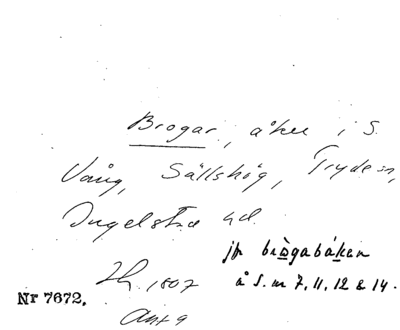 Brogar, åker i S.
Vång, Sällshög, Tryde sn,
Ingelstad hd.
jfr brogabáken
å S. nr 7, 11, 12 & 14.
Lh. 1807
Nr 7672.
Akt 9